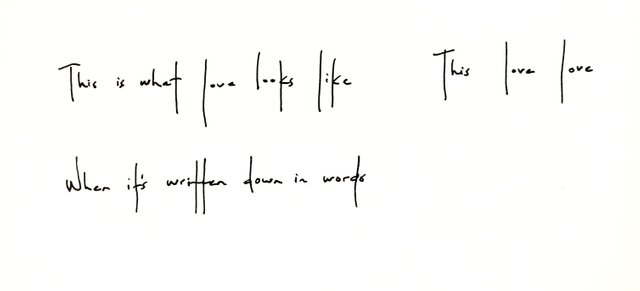 This is what love looks like
This love love
When it's written down in words